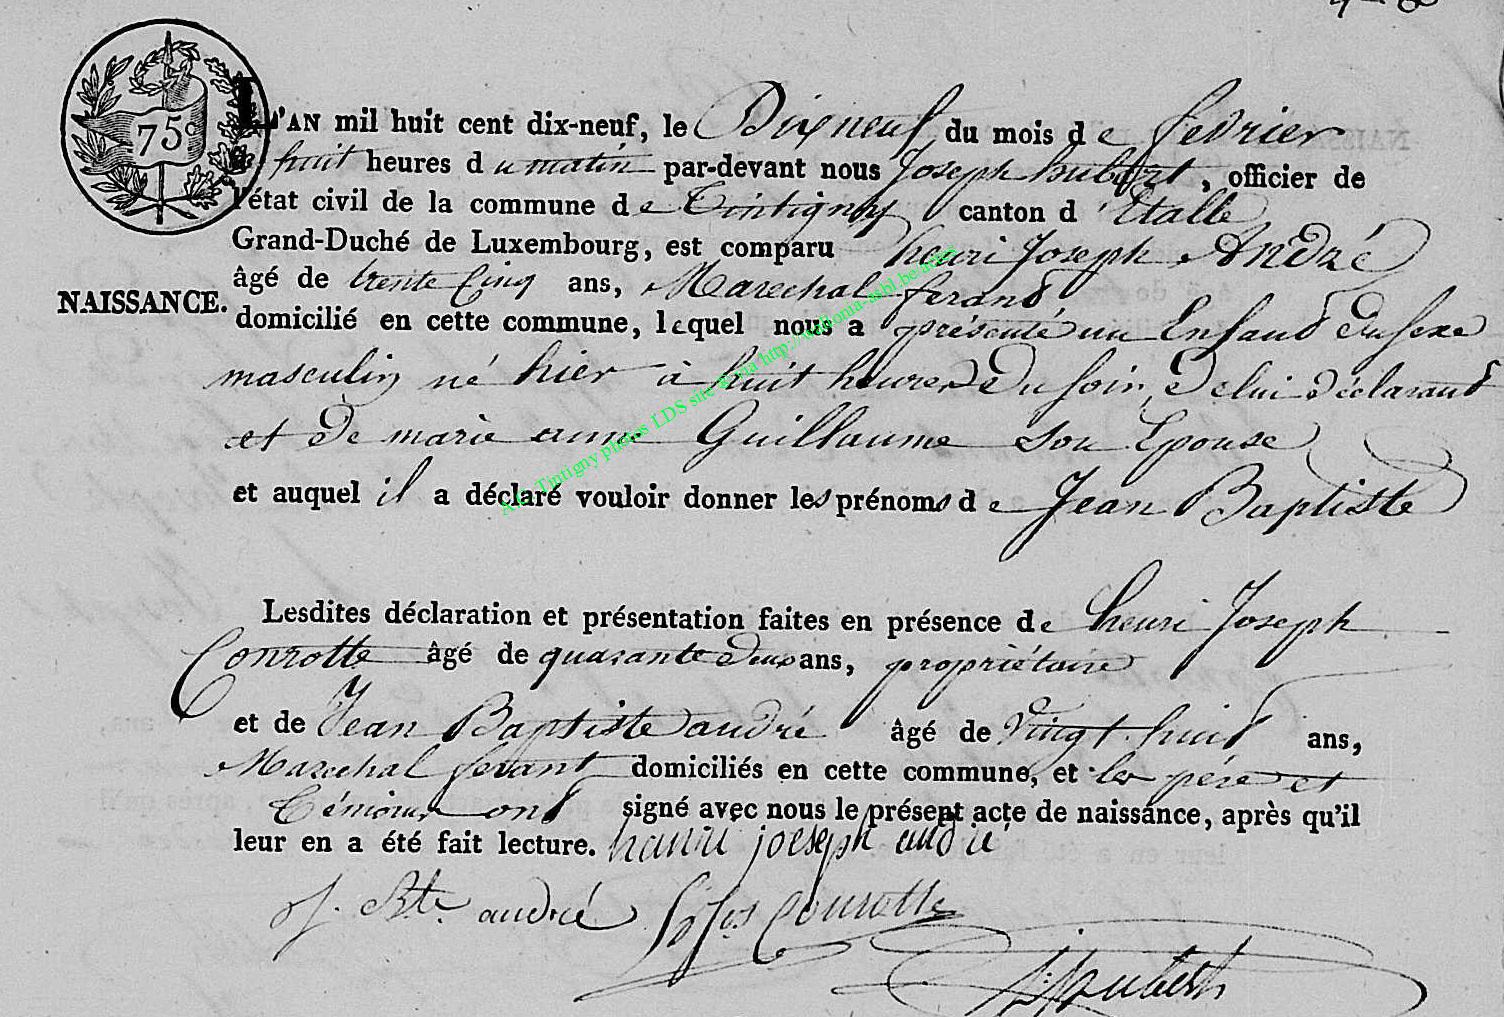 75c
L'AN mil huit cent dix-neuf, le Dixneuf du mois de fevrier
à huit heures du matin par-devant nous Joseph hubert, officier de
l'état civil de la commune de Tintigny canton d'Etalle
Grand-Duché de Luxembourg, est comparu henri Joseph André
âgé de trente Cinq ans, Marechal ferand
NAISSANCE.
domicilié en cette commune, lequel nous a présenté un Enfand du sexe
masculin né hier à huit heures du soir, de lui déclarand
et de marie anne Guillaume son Epouse
et auquel il a déclaré vouloir donner les prénoms de Jean Baptiste
Lesdites déclaration et présentation faites en présence de henri Joseph
Conrotte âgé de quarante deux ans, propriétaire
et de Jean Baptiste andré âgé de Vingt huit ans,
Marechal ferant domiciliés en cette commune, et les pére et
témoins ont signé avec nous le présent acte de naissance, après qu'il
leur en a été fait lecture. hanrii joeseph andrié
j. Bte. andrié hjos Conrotte
J: hubert
A.E. Tintigny photos LDS site & via http://wallonia-asbl.be/actes